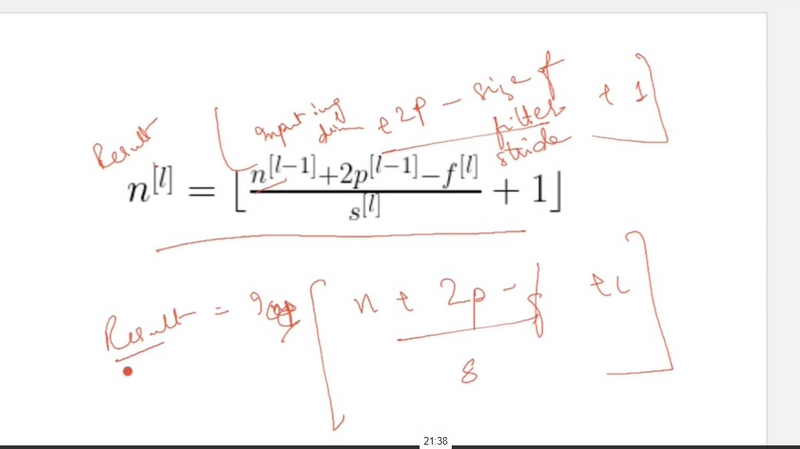 Result [ input img dim + 2p - size of filter / stride + 1 ]
n^[l] = ⌊ (n^[l-1] + 2p^[l-1] - f^[l]) / s^[l] + 1 ⌋
Result = [ n + 2p - f / s + 1 ]
21:38